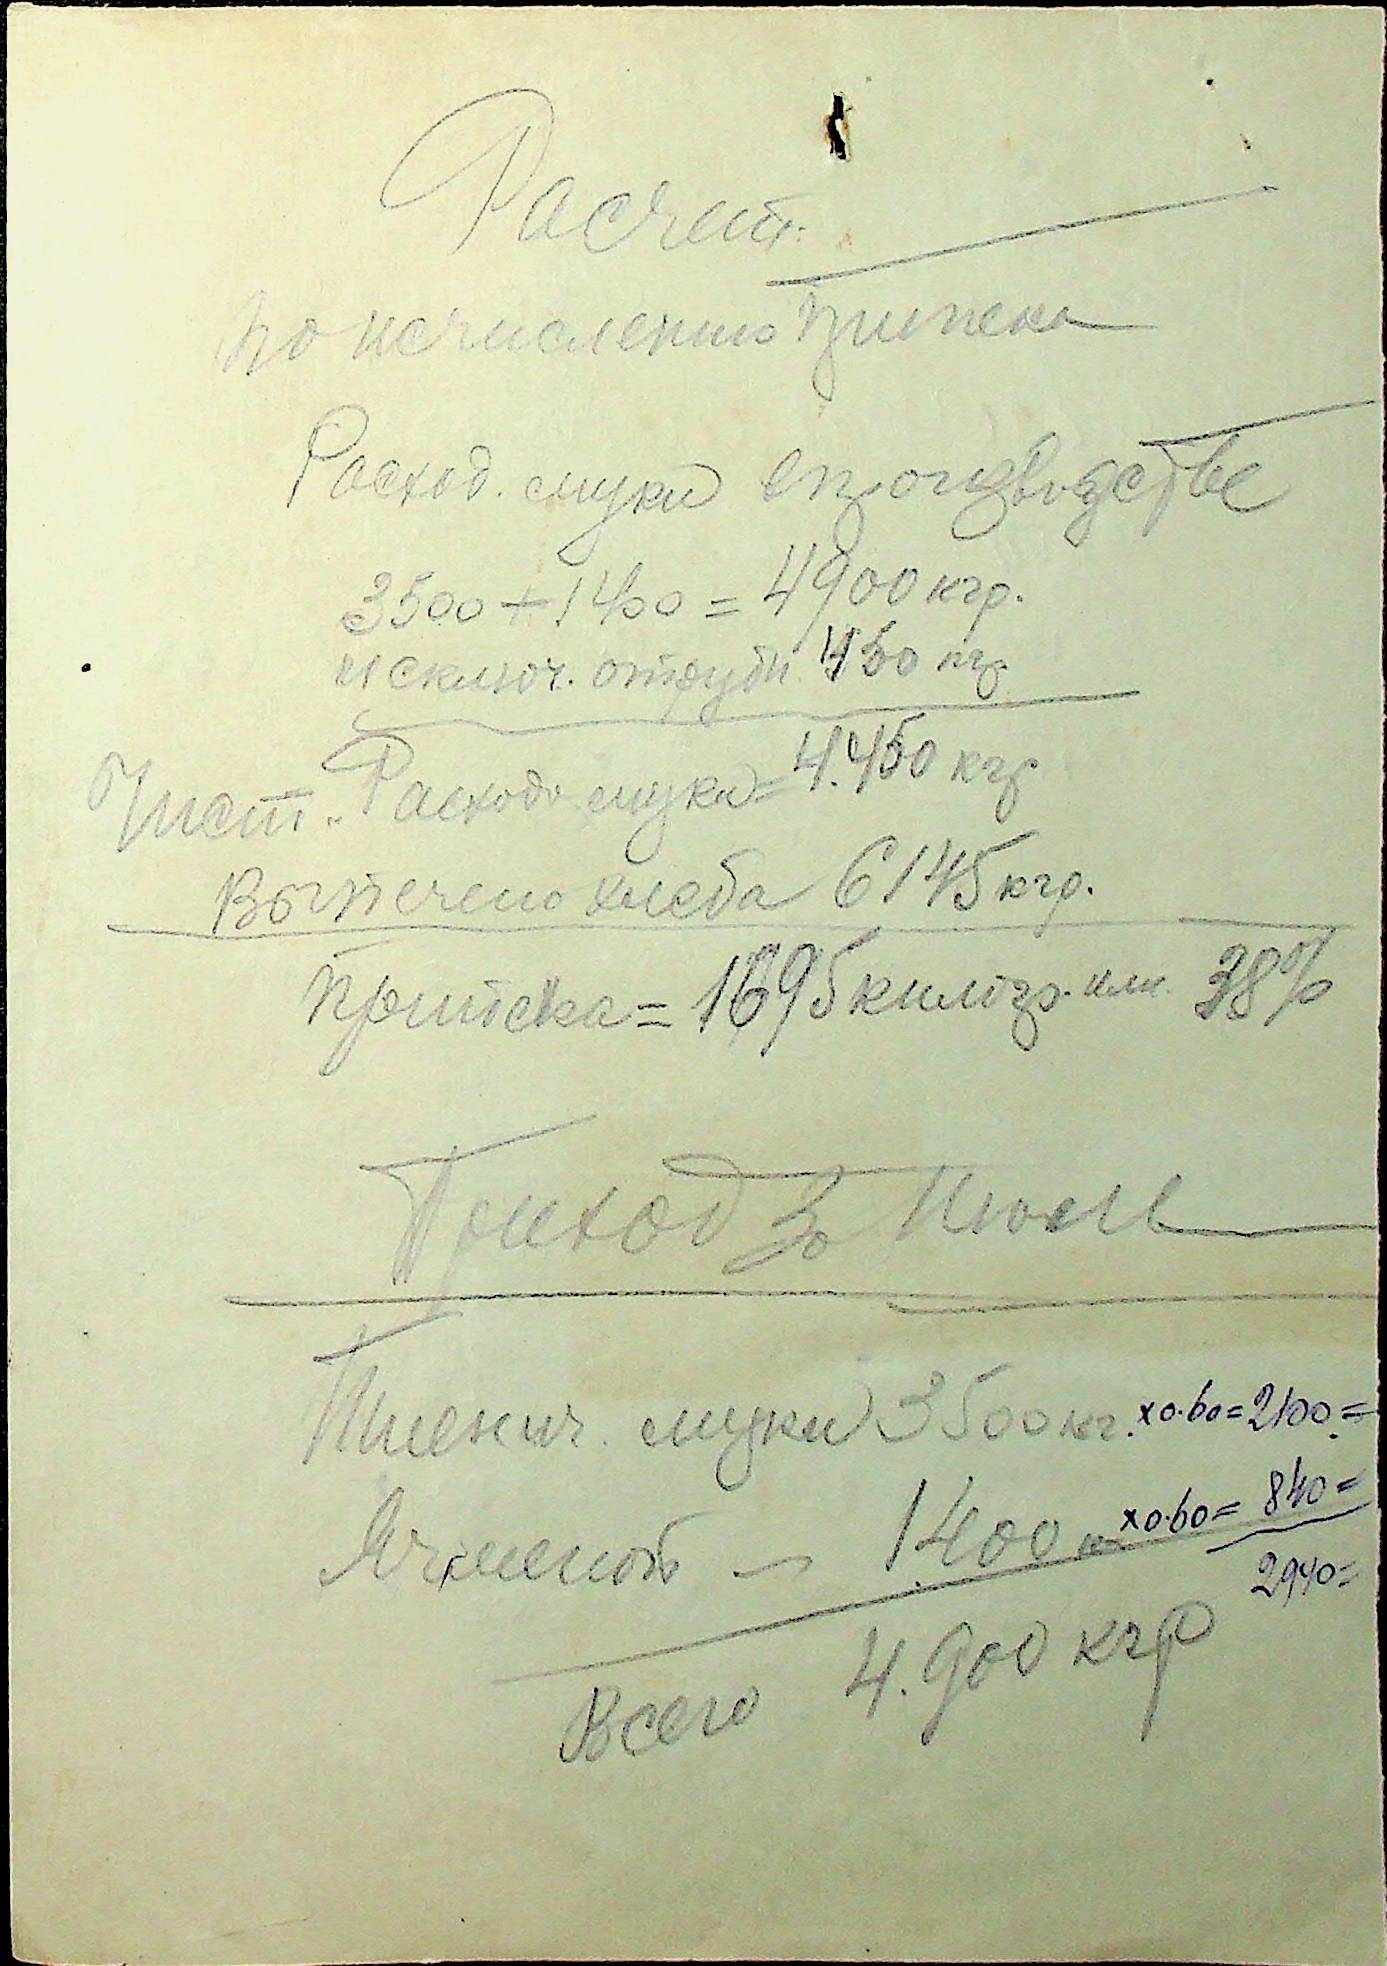 Расчет.
по исчислению припека
Расход. муки впроизводстве
3500 + 1400 = 4900 кгр.
исключ. отруби 450 кгр
Чист. Расходо муки = 4.450 кгр
Выпечено хлеба 6145 кгр.
Припека = 1695 килогр. или 38%
Приход за Июль
Пшенич. муки 3500 кг. x0.60=2100=
Ячменой – 1400 кг x0.60= 840=
2940=
Всего 4.900 кгр